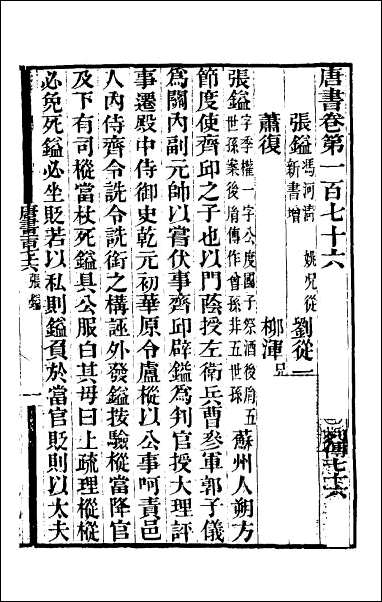 唐書卷第一百七十六
列傳七十六
張鎰 馮河清 姚況從
新書增
劉從一
蕭復 柳渾 兄
張鎰 字季權一字公度國子祭酒後胤五
世孫案後胤傳作曾孫非五世孫
蘇州人朔方
節度使齊邱之子也以門蔭授左衛兵曹參軍郭子儀
爲關內副元帥以嘗伏事齊邱辟鎰爲判官授大理評
事遷殿中侍御史乾元初華原令盧樅以公事呵責邑
人內侍齊令詵令詵銜之構誣外發鎰按驗樅當降官
及下有司樅當杖死鎰具公服白其母曰上疏理樅樅
必免死鎰必坐貶若以私則鎰負於當官貶則以太夫
張鎰
一